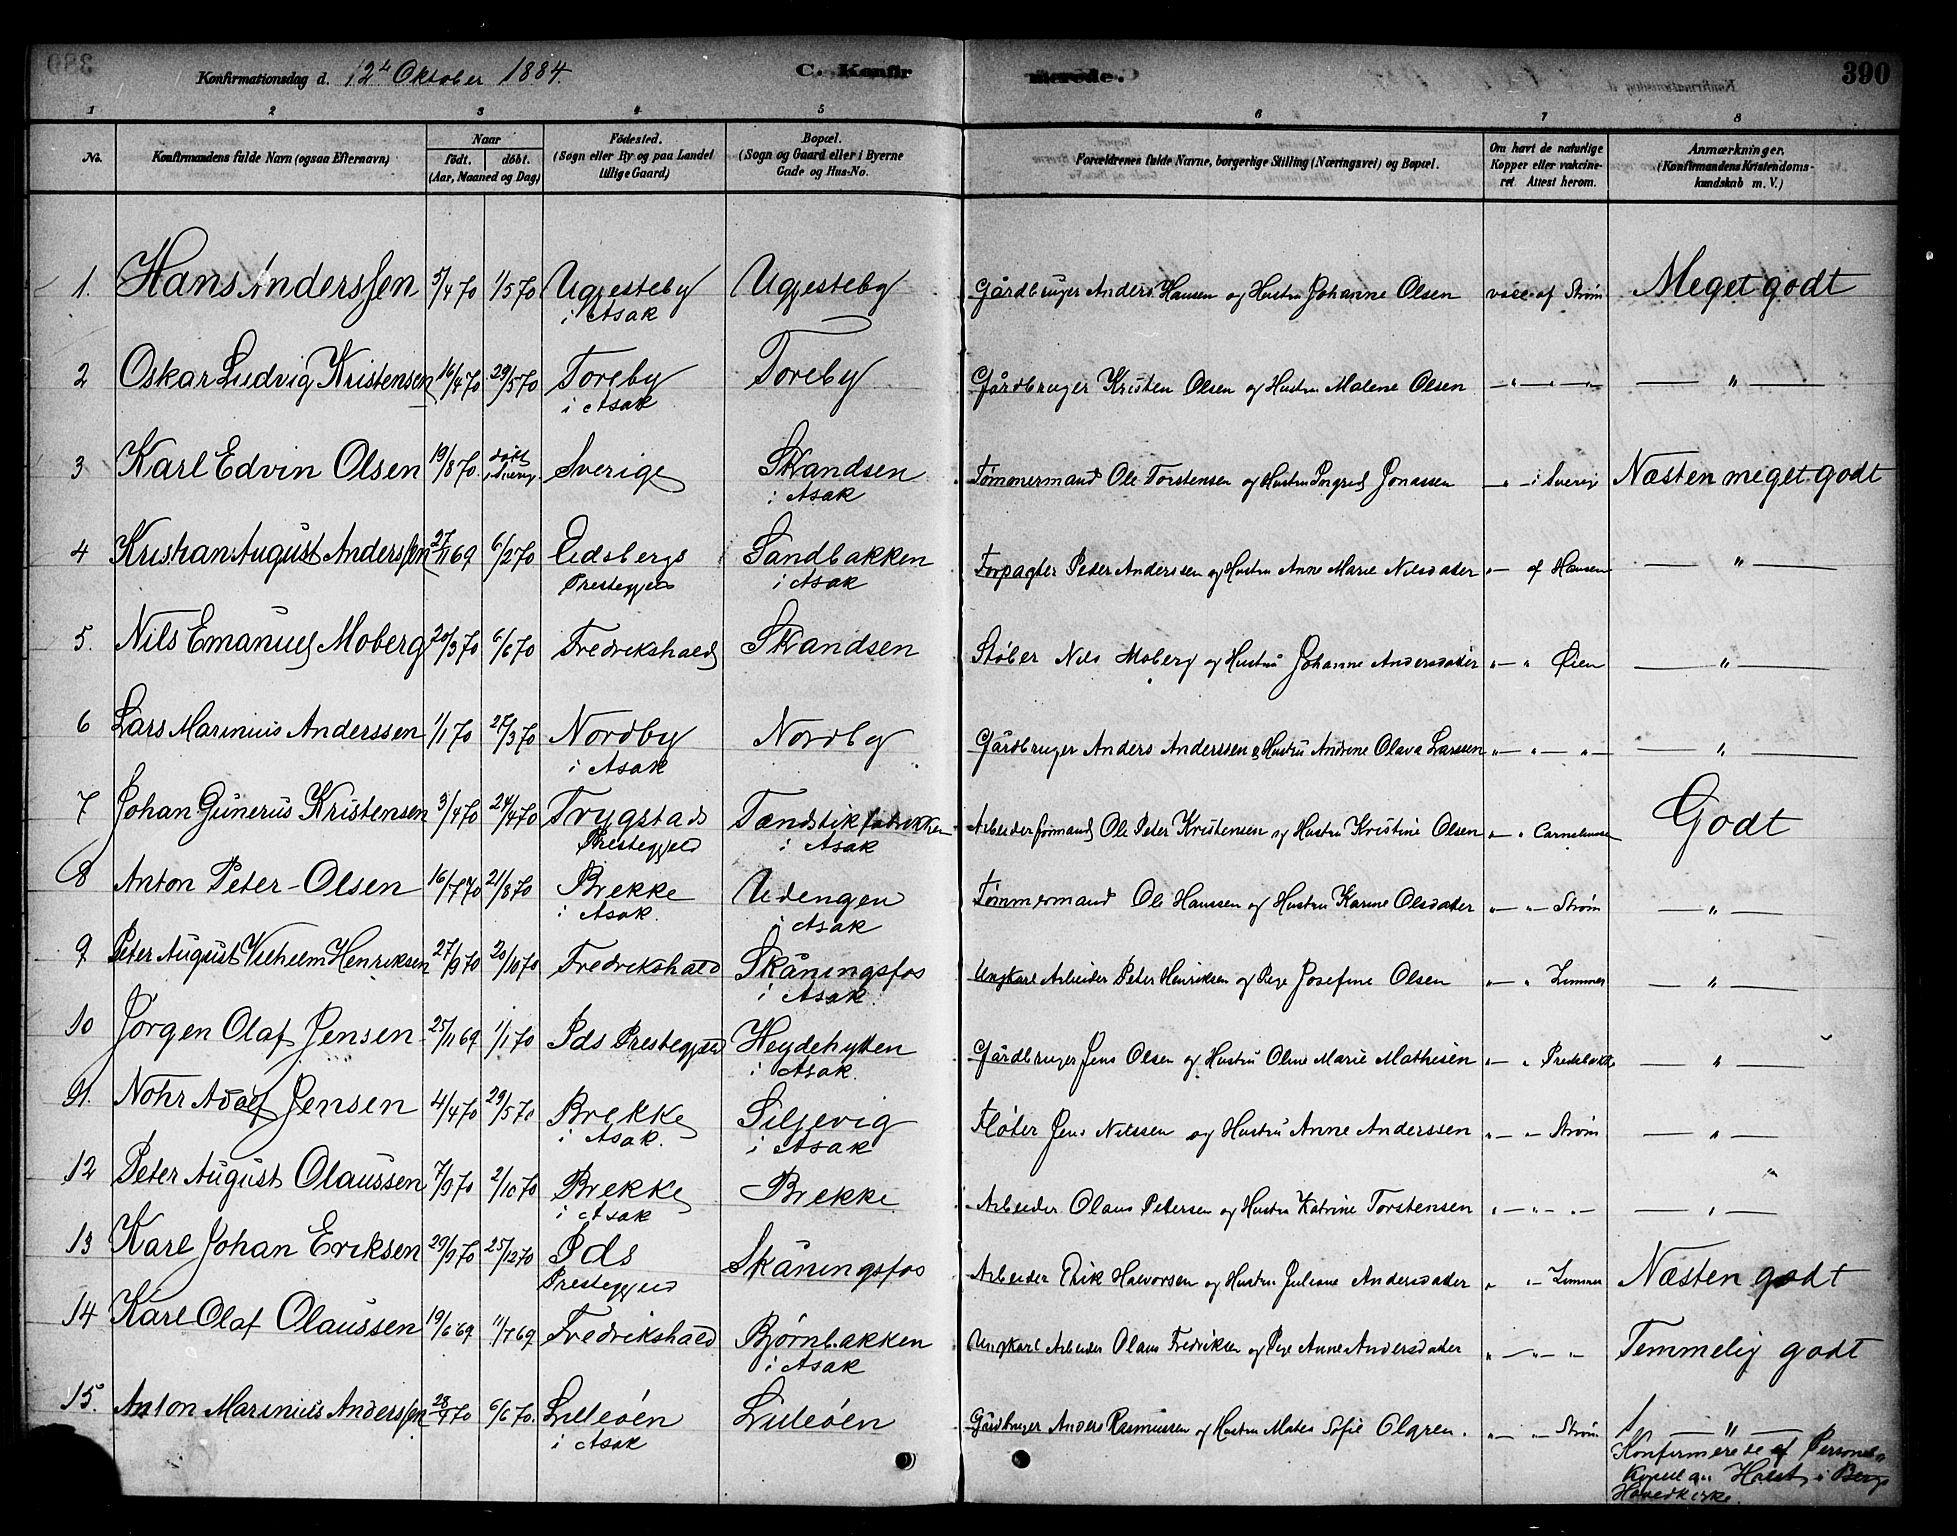 Konfirmationsdag d. 12te Oktober 1884.
C. Konfirmerede.
390
1 2 3 4 5 6 7 8
No.
Konfirmandens fulde Navn (ogsaa Efternavn)
Naar
født. døbt.
(Aar, Maaned og Dag)
Fødested.
(Sogn eller By og paa Landet
tillige Gaard)
Bopæl.
(Sogn og Gaard eller i Byerne
Gade og Hus-No.
Forældrenes fulde Navne, borgerlige Stilling (Næringsvei) og Bopæl.
Om havt de naturlige
Kopper eller vakcine-
ret. Attest herom.
Anmærkninger.
(Konfirmandens Kristendoms-
kundskab m. V.)
1. Hans Anderssen 5/4 70 1/5 70 Ugjesteby Ugjesteby Gårdbruger Anders Hansen og Hustru Johanne Olsen vacc. af Strøm Meget godt
i Asak
2 Oskar Ludvig Kristensen 16/4 70 29/5 70 Toreby Toreby Gårdbruger Kristen Olsen og Hustru Malene Olsen — " — " — — " —
i Asak
3 Karl Edvin Olsen 19/8 70. døbt i Sverig. Sverige Skandsen Tømmermand Ole Torstensen og Hustru Ingred Jonassen — " — i Sverig Næsten meget godt
i Asak
4 Kristian August Anderssen 27/11 69 6/2 70 Eidsbergs Sandbakken Forpagter Peder Anderssen og Hustru Anne Marie Nilsdatter " — af Hansen — " —
Prestegjeld i Asak
5. Nils Emanuel Moberg 20/3 70 6/6 70 Fredrikshald Skandsen Støber Nils Moberg og Hustru Johanne Andersdatter " — " Øien — " —
6 Lars Marinius Anderssen 1/1 70 27/3 70 Nordby Nordby Gårdbruger Anders Anderssen & Hustru Andrine Olava Larssen " — " — " — — " —
i Asak
7 Johan Gunerius Kristensen 3/4 70 24/4 70 Trygstad Tændstikfabrikken Arbeiderformand Ole Peter Kristensen og Hustru Kristine Olsen " — " Godt
Prestegjeld i Asak
8 Anton Peter Olsen 16/7 70 21/8 70 Brekke Udengen Tømmermand Ole Hanssen og Hustru Karine Olsdatter " — " — Strøm — " —
i Asak. i Asak
9 Peter August Vilhelm Henriksen 27/9 70 20/10 70 Fredrikshald Skåningsfos Ungkarl Arbeider Peter Henriksen og Pige Josefine Olsen " — " Limmer — " —
i Asak.
10 Jørgen Olaf Jensen 25/11 69 1/1 70 Ids Prestegjeld Heydehytten Gårdbruger Jens Olsen og Hustru Oline Marie Mathisen " — " — " —
i Asak.
11. Nohr Adolf Jensen 4/4 70 29/5 70 Brekke Siljevig Fløter Jens Nilssen og Hustru Anne Anderssen " — " — Strøm — " —
i Asak. i Asak
12 Peter August Olaussen 7/9 70 2/10 70 Brekke Brekke Arbeider Olaus Petersen og Hustru Katrine Torstensen " — " — " — — " —
i Asak
13 Karl Johan Eriksen 29/9 70 25/12 70 Ids Skåningsfos Arbeider Erik Halvorsen og Hustru Juliane Andersdatter " " — Limmer Næsten godt
Prestegjeld
14 Karl Olaf Olaussen 19/6 69 11/7 69 Fredrikshald Bjørnbakken Ungkarl Arbeider Olaus Fredriksen og Pige Anne Andersdatter " — " — " Temmelig godt
i Asak
15. Anton Marinius Anderssen 28/4 70 6/6 70. Lilleøen Lilleøen Gårdbruger Anders Rasmussen og Hustru Matea Sofie Olgren. " — " — Strøm — " —
i Asak
Konfirmerede af Personel-
kapellan Holst i Bergs
Hovedkirke.